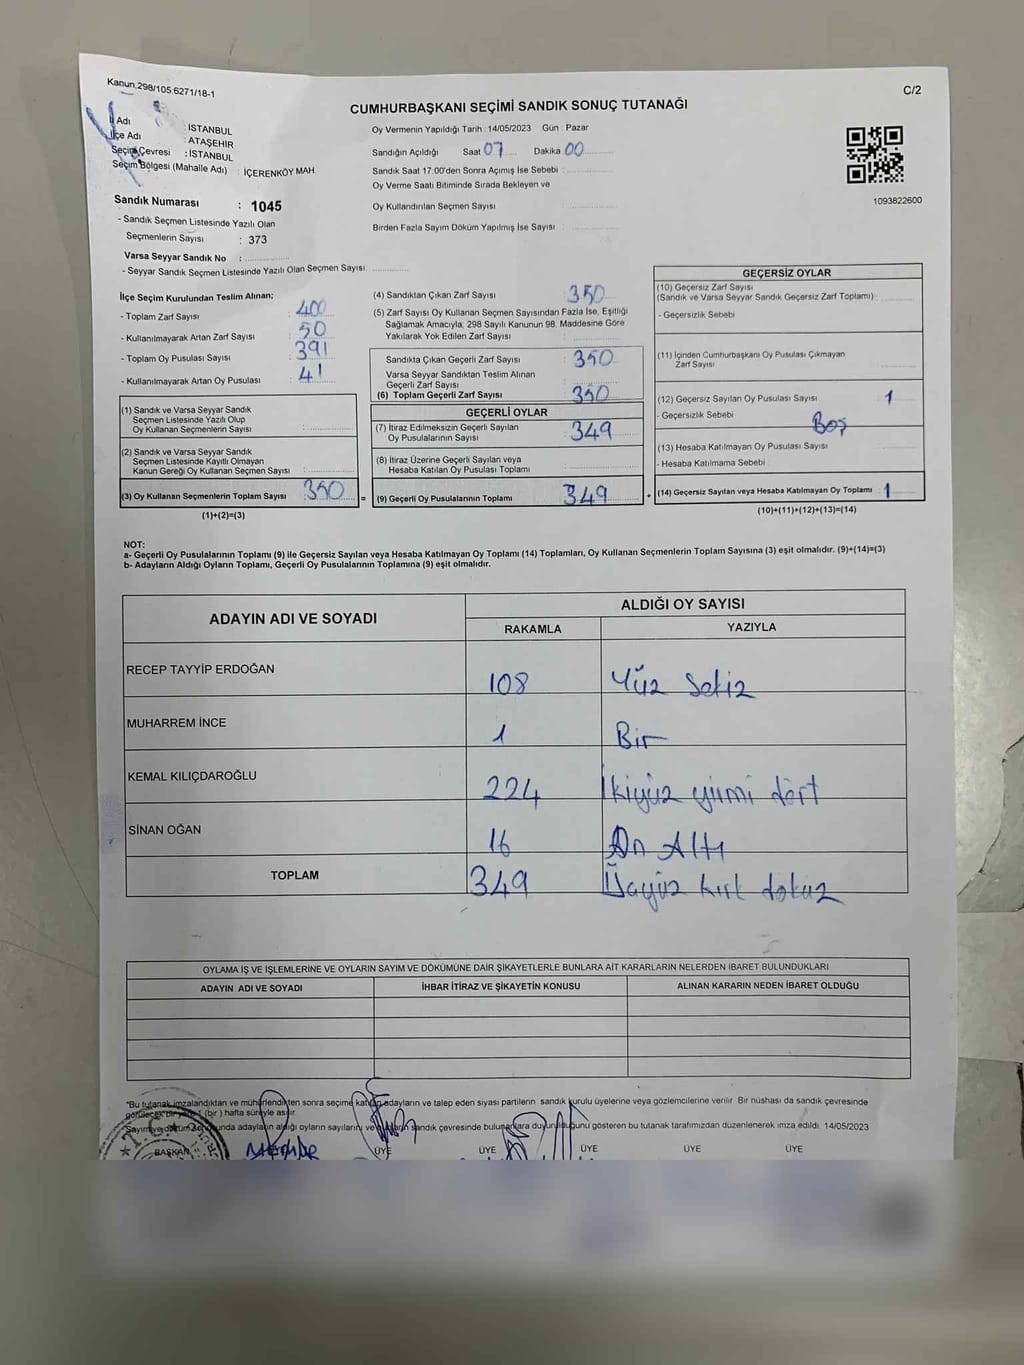 Kanun.298/105.6271/18-1
C/2
CUMHURBAŞKANI SEÇİMİ SANDIK SONUÇ TUTANAĞI
İl Adı : İSTANBUL
İlçe Adı : ATAŞEHİR
Seçim Çevresi : İSTANBUL
Seçim Bölgesi (Mahalle Adı) : İÇERENKÖY MAH.
Sandık Numarası : 1045
- Sandık Seçmen Listesinde Yazılı Olan
Seçmenlerin Sayısı : 373
Varsa Seyyar Sandık No :
- Seyyar Sandık Seçmen Listesinde Yazılı Olan Seçmen Sayısı
Oy Vermenin Yapıldığı Tarih : 14/05/2023 Gün : Pazar
Sandığın Açıldığı Saat 07 Dakika 00
Sandık Saat 17:00'den Sonra Açımış İse Sebebi :
Oy Verme Saati Bitiminde Sırada Bekleyen ve
Oy Kullandırılan Seçmen Sayısı
Birden Fazla Sayım Döküm Yapılmış İse Sayısı :
1093822600
İlçe Seçim Kurulundan Teslim Alınan;
- Toplam Zarf Sayısı : 400
- Kullanılmayarak Artan Zarf Sayısı : 50
- Toplam Oy Pusulası Sayısı : 391
- Kullanılmayarak Artan Oy Pusulası : 41
(1) Sandık ve Varsa Seyyar Sandık
Seçmen Listesinde Yazılı Olup
Oy Kullanan Seçmenlerin Sayısı :
(2) Sandık ve Varsa Seyyar Sandık
Seçmen Listesinde Kayıtlı Olmayan
Kanun Gereği Oy Kullanan Seçmen Sayısı :
(3) Oy Kullanan Seçmenlerin Toplam Sayısı : 350 =
(1)+(2)=(3)
(4) Sandıktan Çıkan Zarf Sayısı : 350
(5) Zarf Sayısı Oy Kullanan Seçmen Sayısından Fazla İse, Eşitliği
Sağlamak Amacıyla; 298 Sayılı Kanunun 98. Maddesine Göre
Yakılarak Yok Edilen Zarf Sayısı :
Sandıkta Çıkan Geçerli Zarf Sayısı : 350
Varsa Seyyar Sandıktan Teslim Alınan
Geçerli Zarf Sayısı :
(6) Toplam Geçerli Zarf Sayısı : 350
GEÇERLİ OYLAR
(7) İtiraz Edilmeksizin Geçerli Sayılan
Oy Pusulalarının Sayısı : 349
(8) İtiraz Üzerine Geçerli Sayılan veya
Hesaba Katılan Oy Pusulası Toplamı :
(9) Geçerli Oy Pusulalarının Toplamı : 349 +
GEÇERSİZ OYLAR
(10) Geçersiz Zarf Sayısı
(Sandık ve Varsa Seyyar Sandık Geçersiz Zarf Toplamı) :
- Geçersizlik Sebebi :
(11) İçinden Cumhurbaşkanı Oy Pusulası Çıkmayan
Zarf Sayısı :
(12) Geçersiz Sayılan Oy Pusulası Sayısı : 1
- Geçersizlik Sebebi : Boş
(13) Hesaba Katılmayan Oy Pusulası Sayısı :
- Hesaba Katılmama Sebebi :
(14) Geçersiz Sayılan veya Hesaba Katılmayan Oy Toplamı : 1
(10)+(11)+(12)+(13)=(14)
NOT:
a- Geçerli Oy Pusulalarının Toplamı (9) ile Geçersiz Sayılan veya Hesaba Katılmayan Oy Toplamı (14) Toplamları, Oy Kullanan Seçmenlerin Toplam Sayısına (3) eşit olmalıdır. (9)+(14)=(3)
b- Adayların Aldığı Oyların Toplamı, Geçerli Oy Pusulalarının Toplamına (9) eşit olmalıdır.
ADAYIN ADI VE SOYADI ALDIĞI OY SAYISI
RAKAMLA YAZIYLA
RECEP TAYYİP ERDOĞAN 108 Yüz Sekiz
MUHARREM İNCE 1 Bir
KEMAL KILIÇDAROĞLU 224 İkiyüz yirmi dört
SİNAN OĞAN 16 On Altı
TOPLAM 349 Üçyüz kırk dokuz
OYLAMA İŞ VE İŞLEMLERİNE VE OYLARIN SAYIM VE DÖKÜMÜNE DAİR ŞİKAYETLERLE BUNLARA AİT KARARLARIN NELERDEN İBARET BULUNDUKLARI
ADAYIN ADI VE SOYADI İHBAR İTİRAZ VE ŞİKAYETİN KONUSU ALINAN KARARIN NEDEN İBARET OLDUĞU
*Bu tutanak imzalandıktan ve mühürlendikten sonra seçime katılan adayların ve talep eden siyasi partilerin sandık kurulu üyelerine veya gözlemcilerine verilir. Bir nüshası da sandık çevresinde
görülecek bir yere 1 (bir) hafta süreyle asılır.
Sayım ve döküm sonunda adayların aldığı oyların sayılarını ve sandık çevresinde bulunanlara duyurulduğunu gösteren bu tutanak tarafımızdan düzenlenerek imza edildi. 14/05/2023
BAŞKAN ÜYE ÜYE ÜYE ÜYE ÜYE
T.C.